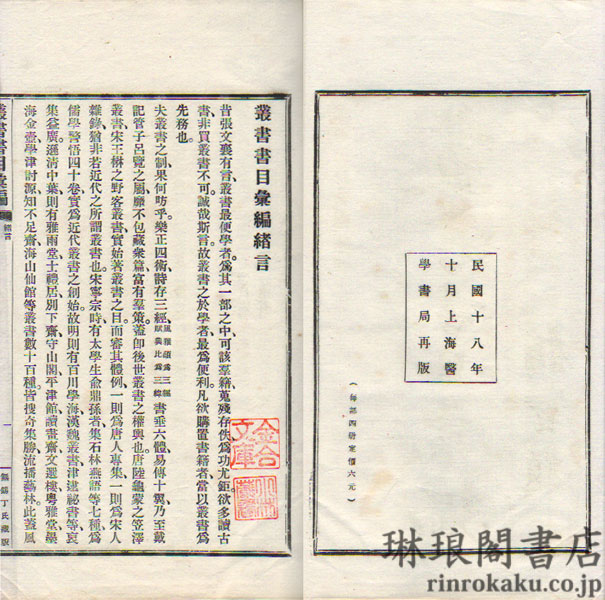 民國十八年
十月上海醫
學書局再版
(每部四册定價六元)
叢書書目彙編緒言
昔張文襄有言叢書最便學者爲其一部之中可該羣籍蒐殘存佚爲功尤鉅欲多讀古
書非買叢書不可誠哉斯言故叢書之於學者最爲便利凡欲購置書籍者當以叢書爲
先務也
夫叢書之制果何昉乎樂正四術詩存三經風雅頌爲三經賦興比爲三緯書垂六體易傳十翼乃至戴
記管子呂覽之屬靡不包藏衆篇富有羣策蓋卽後世叢書之權輿也唐陸龜蒙之笠澤
叢書宋王楙之野客叢書實始著叢書之目而審其體例一則爲唐人專集一則爲宋人
雜錄猶非若近代之所謂叢書也宋寧宗時有太學生俞鼎孫者集石林燕語等七種爲
儒學警悟四十卷實爲近代叢書之創始故明則有百川學海漢魏叢書津逮祕書等裒
集益廣遜清中葉則有雅雨堂士禮居別下齋守山閣平津館讀畫齋文選樓粵雅堂墨
海金壺學津討源知不足齋海山仙館等叢書數十百種皆搜奇集勝流播藝林此叢風
叢書書目彙編
緒言
一
無錫丁氏藏版
琳琅閣書店
rinrokaku.co.jp